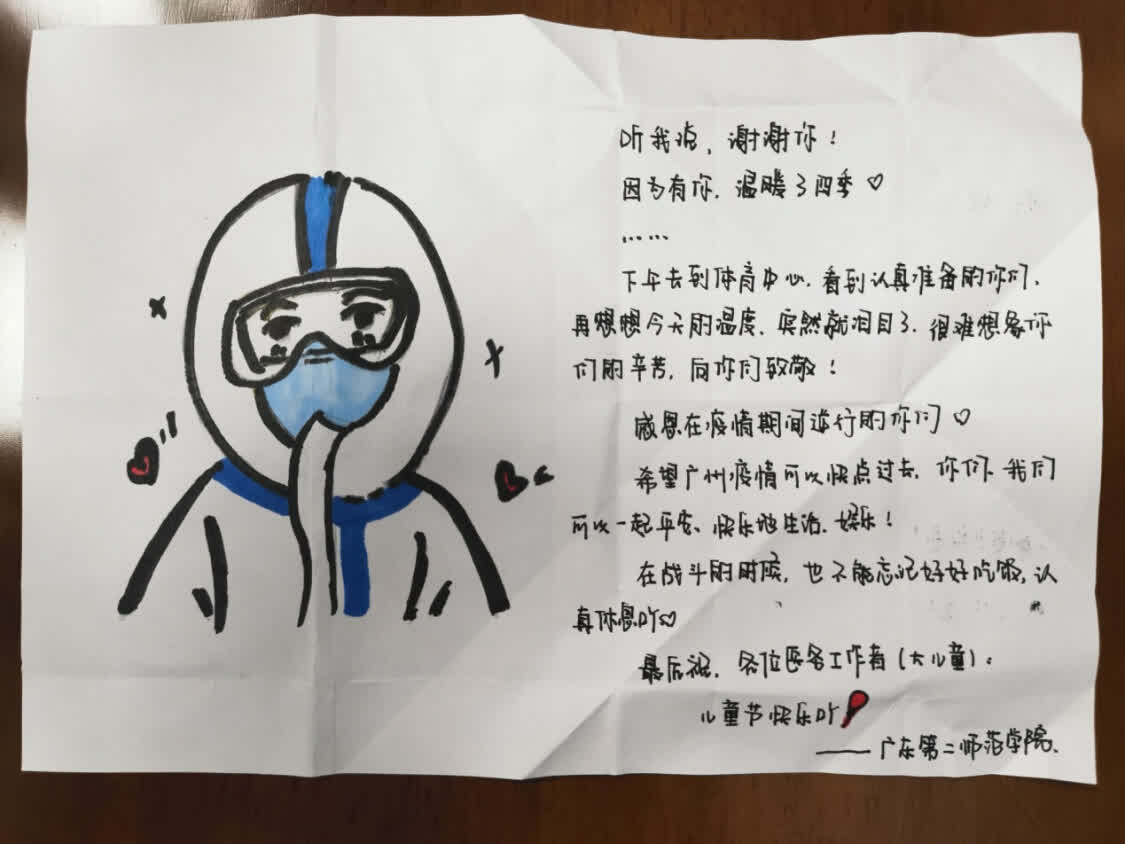 听我说，谢谢你！
因为有你，温暖了四季♡
……
下午去到体育中心，看到认真准备的你们，
再想想今天的温度，突然就泪目了，很难想象你
们的辛苦，向你们致敬！
感恩在疫情期间逆行的你们♡
希望广州疫情可以快点过去，你们、我们
可以一起平安、快乐地生活、娱乐！
在战斗的时候，也不能忘记好好吃饭，认
真休息吖♡
最后祝，各位医务工作者（大儿童）：
儿童节快乐吖
——广东第二师范学院.